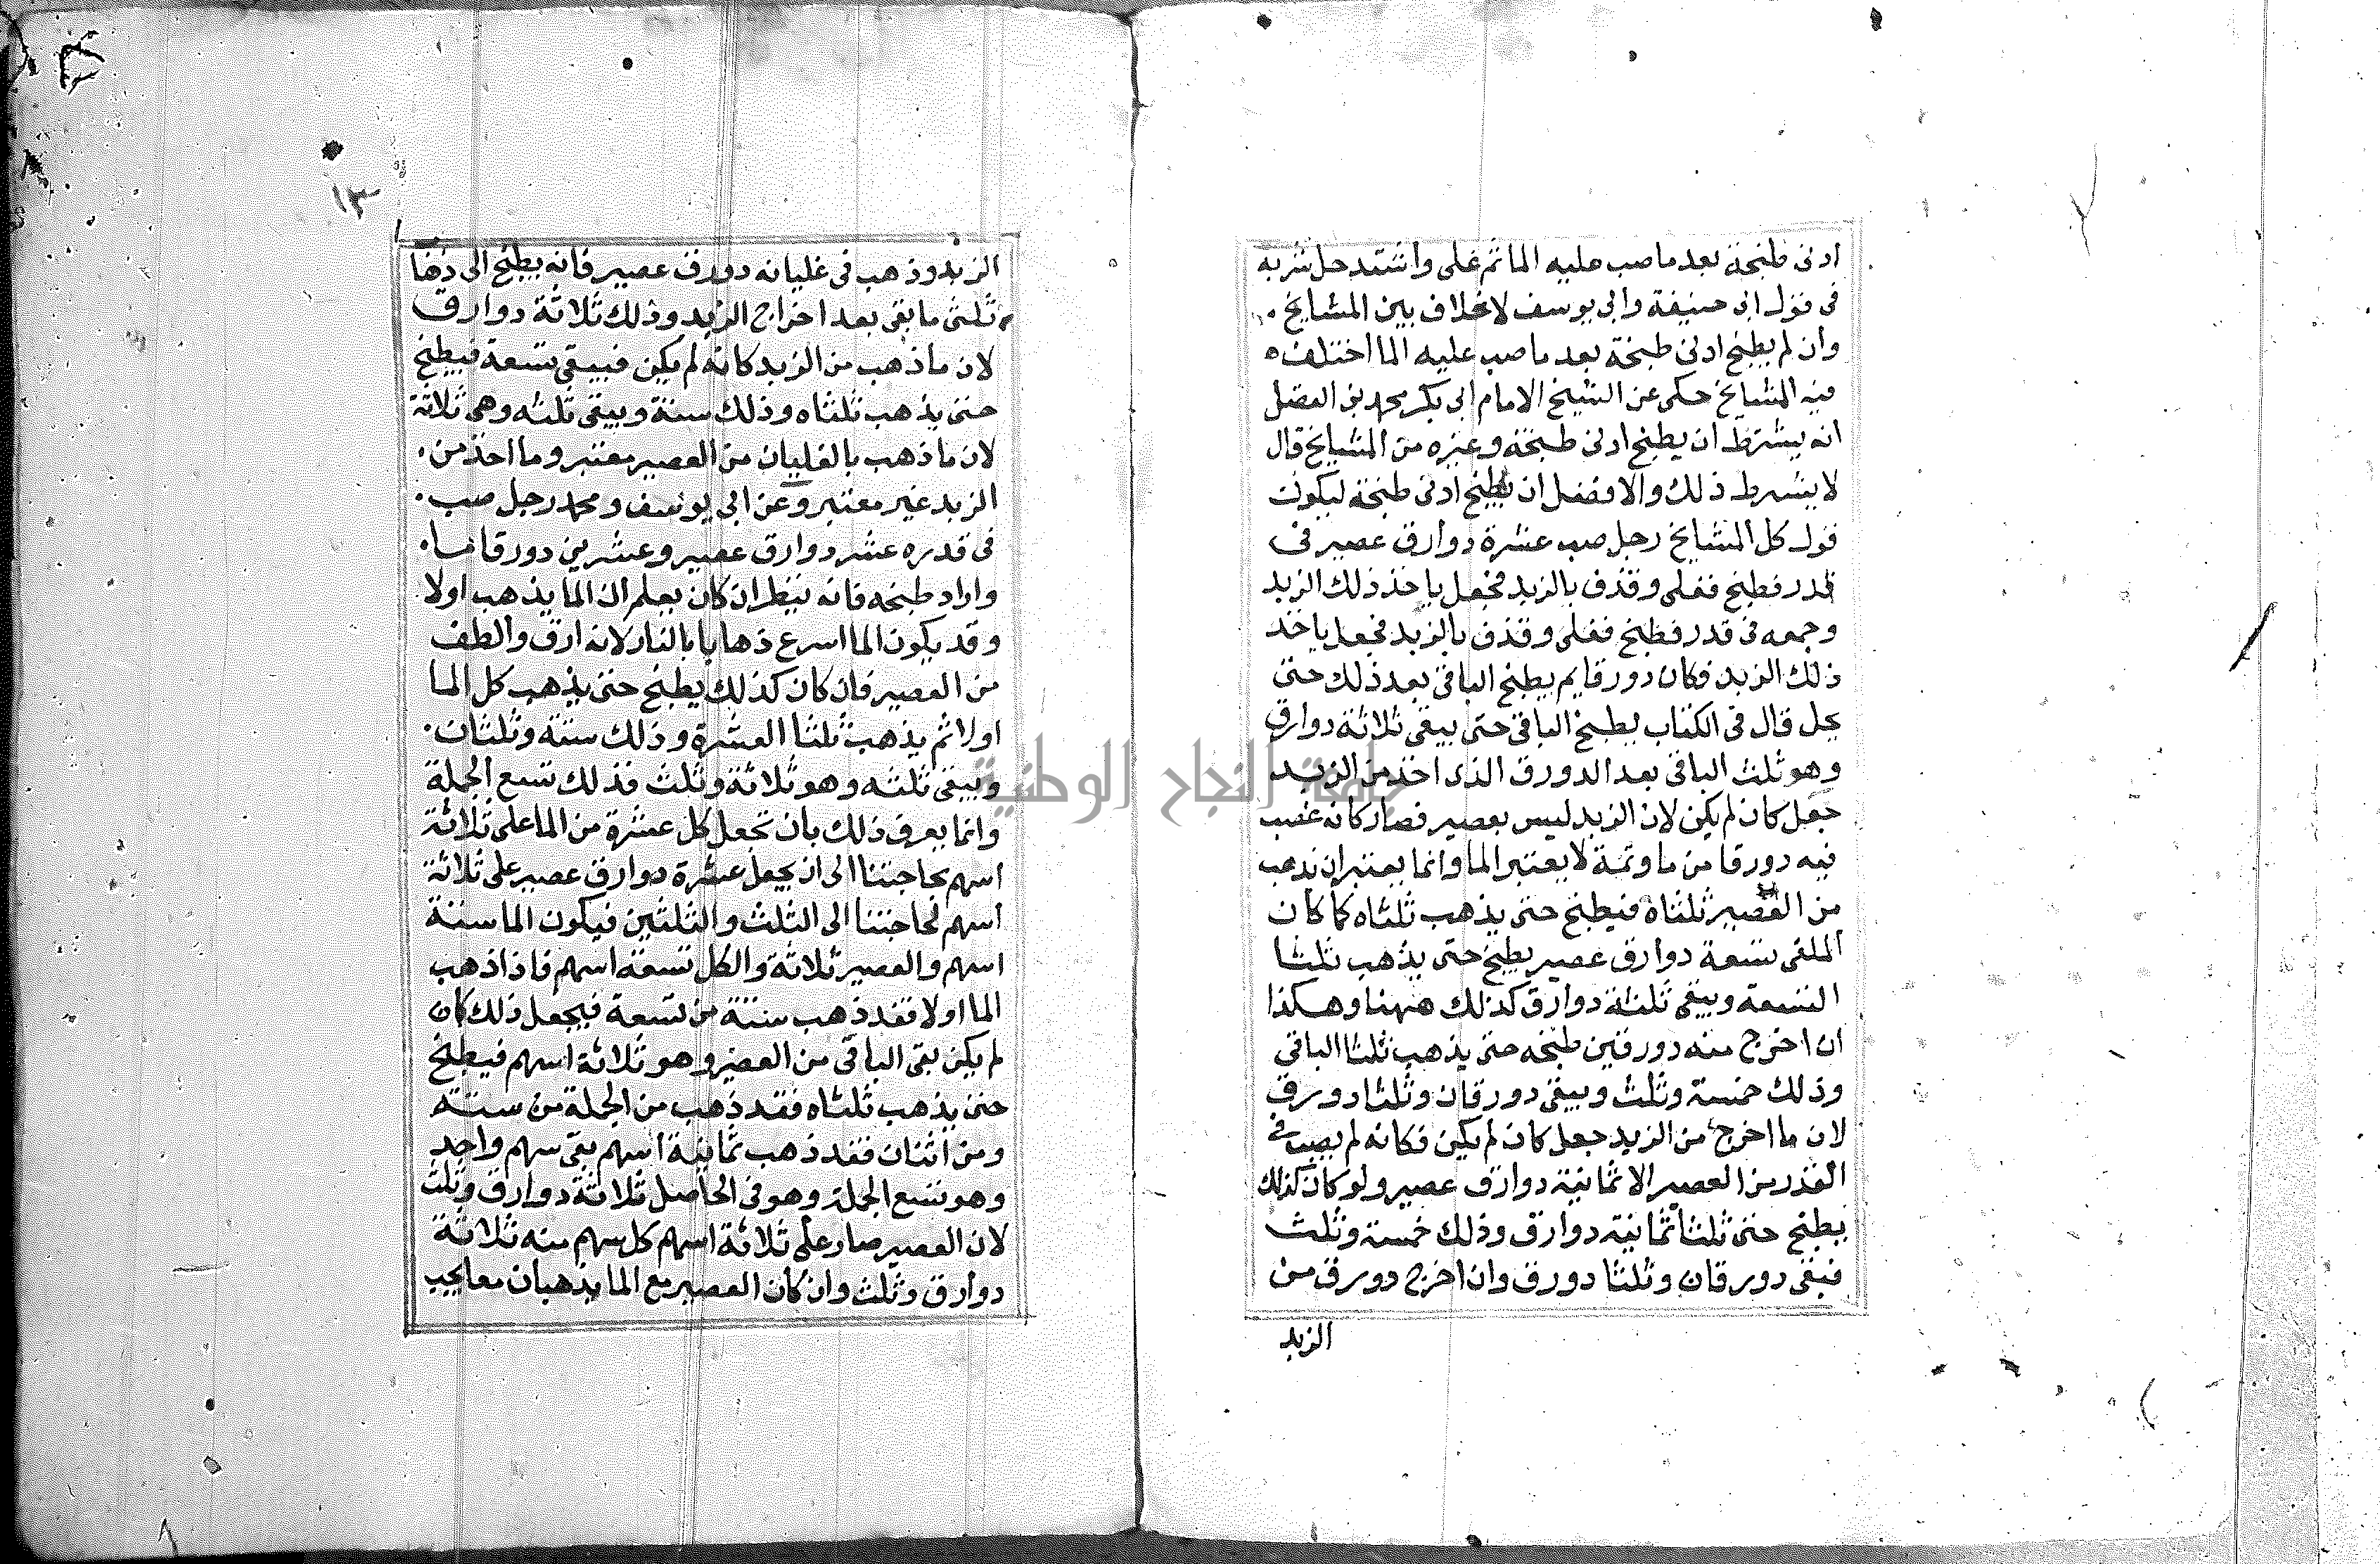 ادنى طبخة بعد ما صب عليه الما ثم غلى واشتد حل شربه
فى قول ابى حنيفة وابى يوسف لا خلاف بين المشايخ
وان لم يطبخ ادنى طبخة بعد ما صب عليه الما اختلف
فيه المشايخ حكى عن الشيخ الامام ابى بكر محمد بن الفضل
انه يشترط ان يطبخ ادنى طبخة وغيره من المشايخ قال
لا يشترط ذلك والافضل ان يطبخ ادنى طبخة ليكون
قول كل المشايخ رجل صب عشرة دوارق عصير فى
قدر فطبخ فغلى وقذف بالزبد فجعل ياخذ ذلك الزبد
وجمعه فى قدر فطبخ فغلى وقذف بالزبد فجعل ياخذ
ذلك الزبد فكان دورقا يم يطبخ الباقى بعد ذلك حتى
يحل قال فى الكتاب يطبخ الباقى حتى يبقى ثلاثة دوارق
وهو ثلث الباقى بعد الدورق الذى اخذ من الزبد
جعل كان لم يكن لان الزبد ليس بعصير فصار كانه صب
فيه دورقا من ما وثمة لا يعتبر الما وانما يعتبر ان يذهب
من العصير ثلثاه فيطبخ حتى يذهب ثلثاه كما كان
الملقى تسعة دوارق عصير يطبخ حتى يذهب ثلثا
التسعة ويبقى ثلثة دوارق كذلك ههنا وهكذا
ان اخرج منه دورقين طبخه حتى يذهب ثلثا الباقى
وذلك خمسة وثلث ويبقى دورقان وثلثا دورق
لان ما اخرج من الزبد جعل كان لم يكن فكانه لم يصب فى
القدر من العصير الا ثمانية دوارق عصير ولو كان كذلك
يطبخ حتى ثلثا ثمانية دوارق وذلك خمسة وثلث
فبقى دورقان وثلثا دورق وان اخرج دورق من
الزبد
١٣
الزبد وذهب فى غليانه دورق عصير فانه يطبخ الى ذها
ثلثى ما بقى بعد اخراج الزبد وذلك ثلاثة دوارق
لان ما ذهب من الزبد كانه لم يكن فبيقى تسعة فيطبخ
حتى يذهب ثلثاه وذلك ستة ويبقى ثلثه وهى ثلاثة
لان ما ذهب بالغليان من العصير معتبر وما اخذ من
الزبد غير معتبر وعن ابى يوسف ومحمد رجل صب
فى قدره عشر دوارق عصير وعشرين دورقا ما
واراد طبخه فانه ينظر ان كان يعلم ان الما يذهب اولا
وقد يكون الما اسرع ذهابا بالنار لانه ارق والطف
من العصير فان كان كذلك يطبخ حتى يذهب كل الما
اولا ثم يذهب ثلثا العشرة وذلك ستة وثلثان
ويبقى ثلثه وهو ثلاثة وثلث فذلك تسع الجملة
وانما يعرف ذلك بان تجعل كل عشرة من الما على ثلاثة
اسهم بحاجتنا الى ان يجعل عشرة دوارق عصير على ثلاثة
اسهم لحاجتنا الى الثلث والثلثين فيكون الما ستة
اسهم والعصير ثلاثة والكل تسعة اسهم فاذا ذهب
الما اولا فقد ذهب ستة من تسعة فيجعل ذلك كان
لم يكن بقى الباقى من العصير وهو ثلاثة اسهم فيطبخ
حتى يذهب ثلثاه فقد ذهب من الجملة من ستة
ومن اثنان فقد ذهب ثمانية اسهم بقى سهم واحد
وهو تسع الجملة وهو فى الحاصل ثلاثة دوارق وثلث
لان العصير صار على ثلاثة اسهم كل سهم منه ثلاثة
دوارق وثلث وان كان العصير مع الما يذهبان معا يجب
جامعة النجاح الوطنية